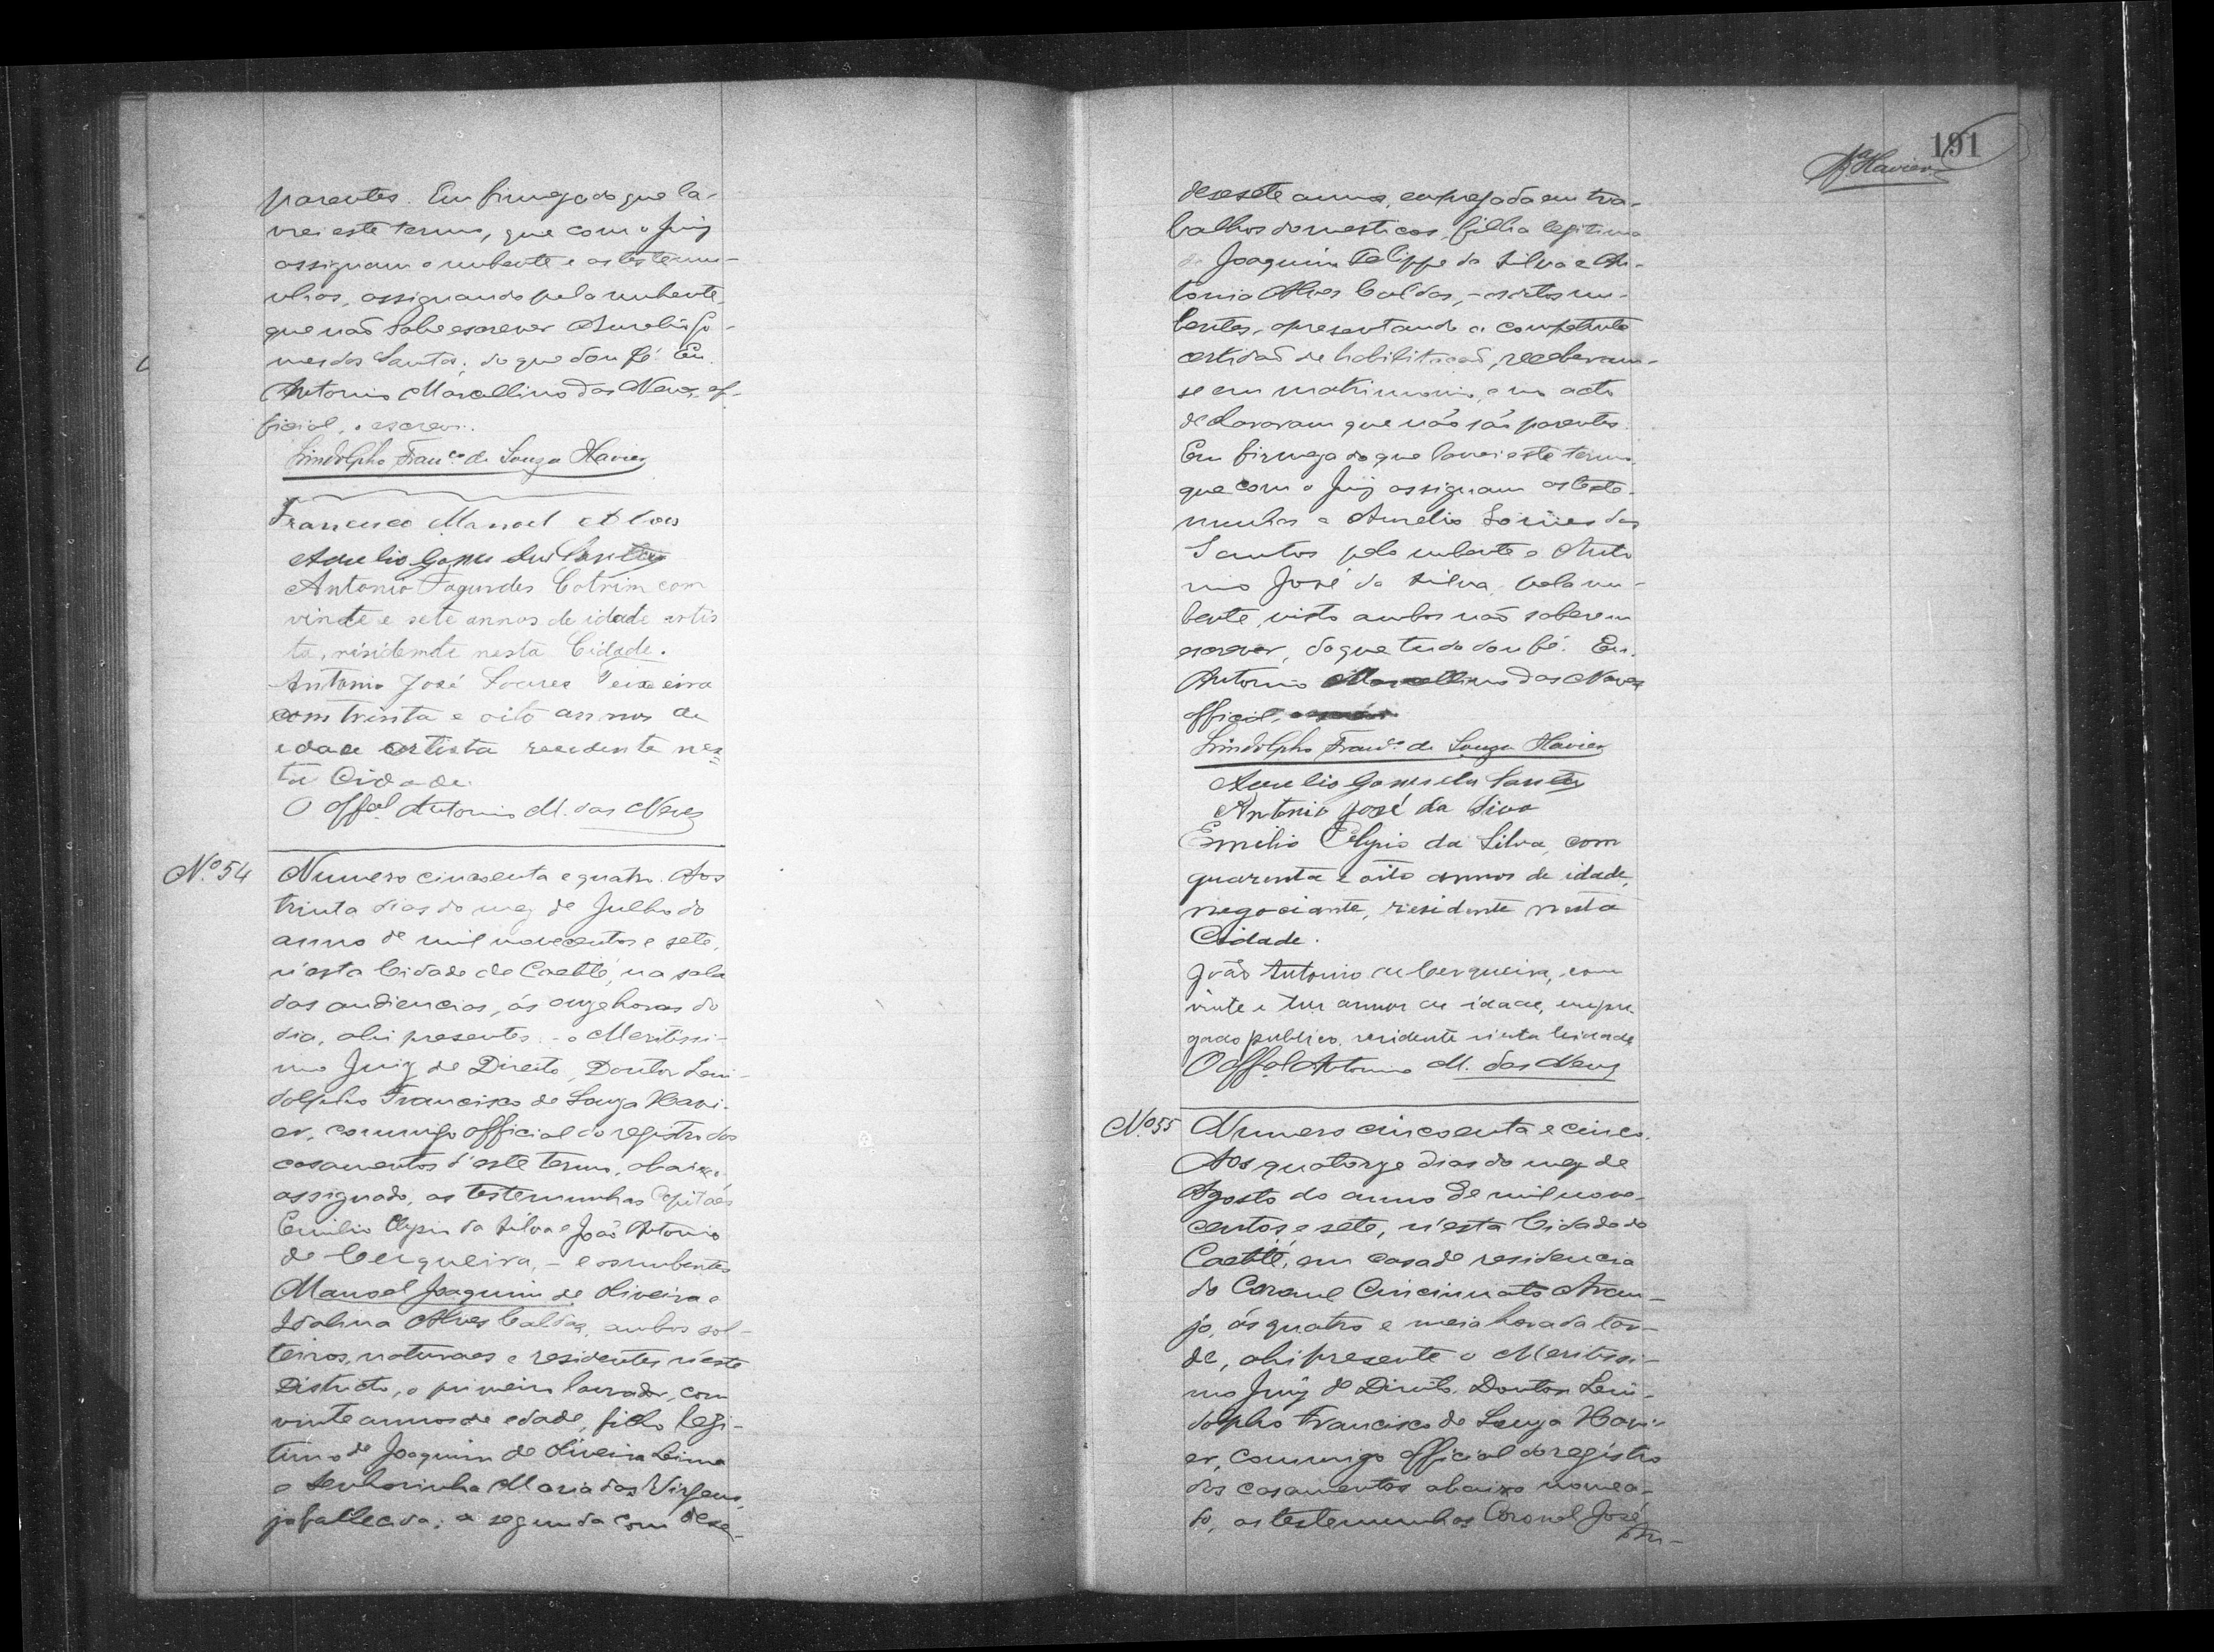 parentes. Em firmeza do que la-
vrei este termo, que com o Juiz
assignam o nubente e as testemu-
nhas, assignando pela nubente,
que não sabe escrever Aurelio Go-
mes dos Santos; do que dou fé. Eu
Antonio Marcellino das Neves, of-
ficial, o escrevi.
Lindolpho Franco. de Souza Xavier
Francisco Manoel Alves
Aurelio Gomes dos Santos
Antonio Fagundes Cotrim com
vinte e sete annos de idade artis
ta, risidemte nesta Cidade.
Antonio José Soares Teixeira
com trinta e oito annos de
edade artista recedente nes=
ta Cidade.
O Offal. Antonio M. das Neves
No. 54
Numero cincoenta e quatro. Aos
trinta dias do mez de Julho do
anno de mil novecentos e sete,
n'esta Cidade de Caetité, na sala
das audiencias, ás onze horas do
dia, ahi presentes - o Meritissi-
mo Juiz de Direito, Doutor Lin-
dolpho Francisco de Souza Xavi-
er, commigo official do registro dos
casamentos d'este termo, abaixo
assignado, as testemunhas Capitães
Emilio Olypio da Silva e João Antonio
de Cerqueira, - e os nubentes
Manoel Joaquim de Oliveira e
Idalina Alves Caldas, ambos sol-
teiros, naturaes e residentes n'este
Districto, o primeiro lavrador, com
vinte annos de edade, filho legi-
timo de Joaquim de Oliveira Lima
e Senhorinha Maria das Virgens,
ja fallecida; a segunda com dese-
191
Fa. Xavier
desesete annos, empregada em tra-
balhos domesticos, filha legitima
de Joaquim Felippe da Silva e An-
tonia Alves Caldas, - os ditos nu-
bentes, apresentando a competente
certidão de habilitação, receberam-
se em matrimonio, e no acto
declararam que não são parentes.
Em firmeza do que lavrei este termo,
que com o Juiz assignam as teste-
munhas e Aurelio Gomes dos
Santos pelo nubente e Anto
nio José da Silva, pela nu-
bente, visto ambos não saberem
escrever, do que tudo dou fé. Eu
Antonio Marcellino das Neves
official,
Lindolpho Franco. de Souza Xavier
Aurelio Gomes dos Santos
Antonio José da Siva
Emilio Olypio da Silva, com
quarenta e oito annos de idade,
negociante, residente nesta
Cidade.
João Antonio de Cerqueira, com
vinte e tres annos de idade, empre
gado publico, residente n'esta Cidade
O Offal Antonio M. das Neves
No. 55
Numero cincoenta e cinco.
Aos quatorze dias do mez de
Agosto do anno de mil nove-
centos e sete, n'esta Cidade de
Caetité, em casa de residencia
do Coronel Cincinnato Arau-
jo, ás quatro e meia hora da tar-
de, ahi presente o Meritissi-
mo Juiz de Direito Doutor Lin-
dolpho Francisco de Souza Xavi-
er, commigo official do registro
dos casamentos abaixo nomea-
do, as testemunhas Coronel José